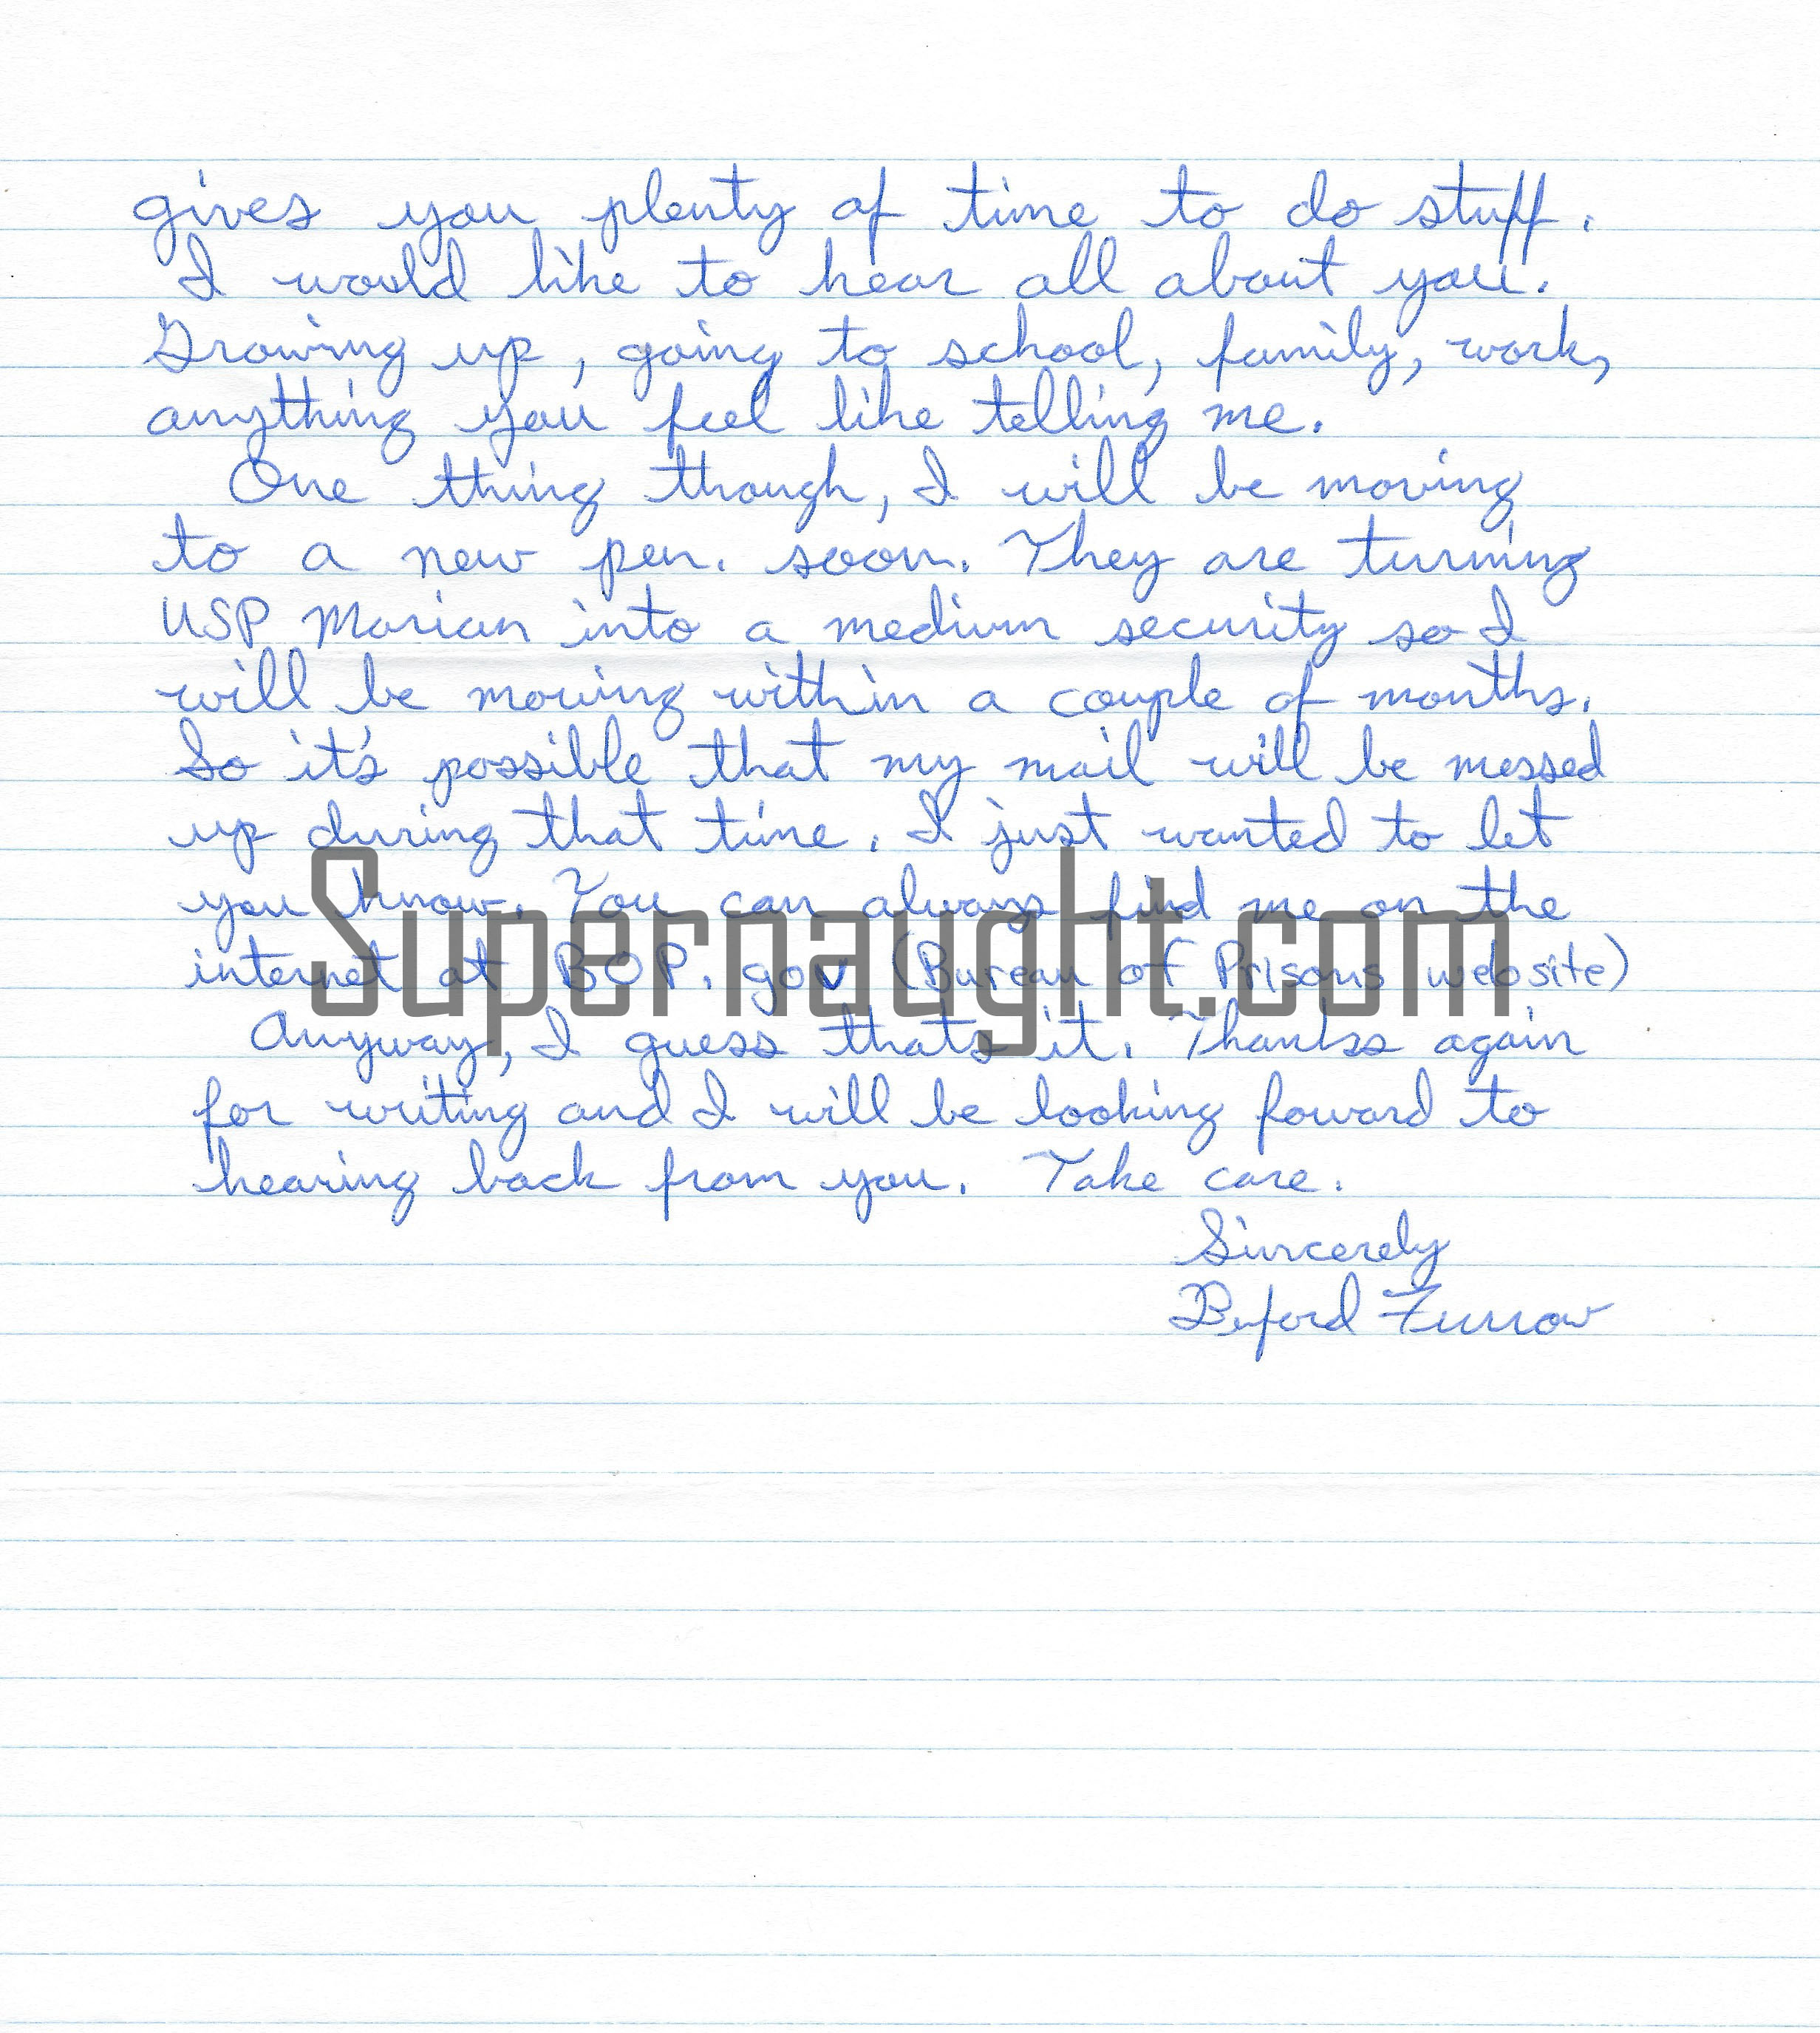 gives you plenty of time to do stuff.
I would like to hear all about you.
Growing up, going to school, family, work,
anything you feel like telling me.
One thing though, I will be moving
to a new pen. soon. They are turning
USP Marion into a medium security so I
will be moving within a couple of months.
So it's possible that my mail will be messed
up during that time. I just wanted to let
you know. You can always find me on the
internet at BOP.gov (Bureau of Prisons website)
Supernaught.com
Anyway, I guess thats it. Thanks again
for writing and I will be looking foward to
hearing back from you. Take care.
Sincerely
Buford Furrow